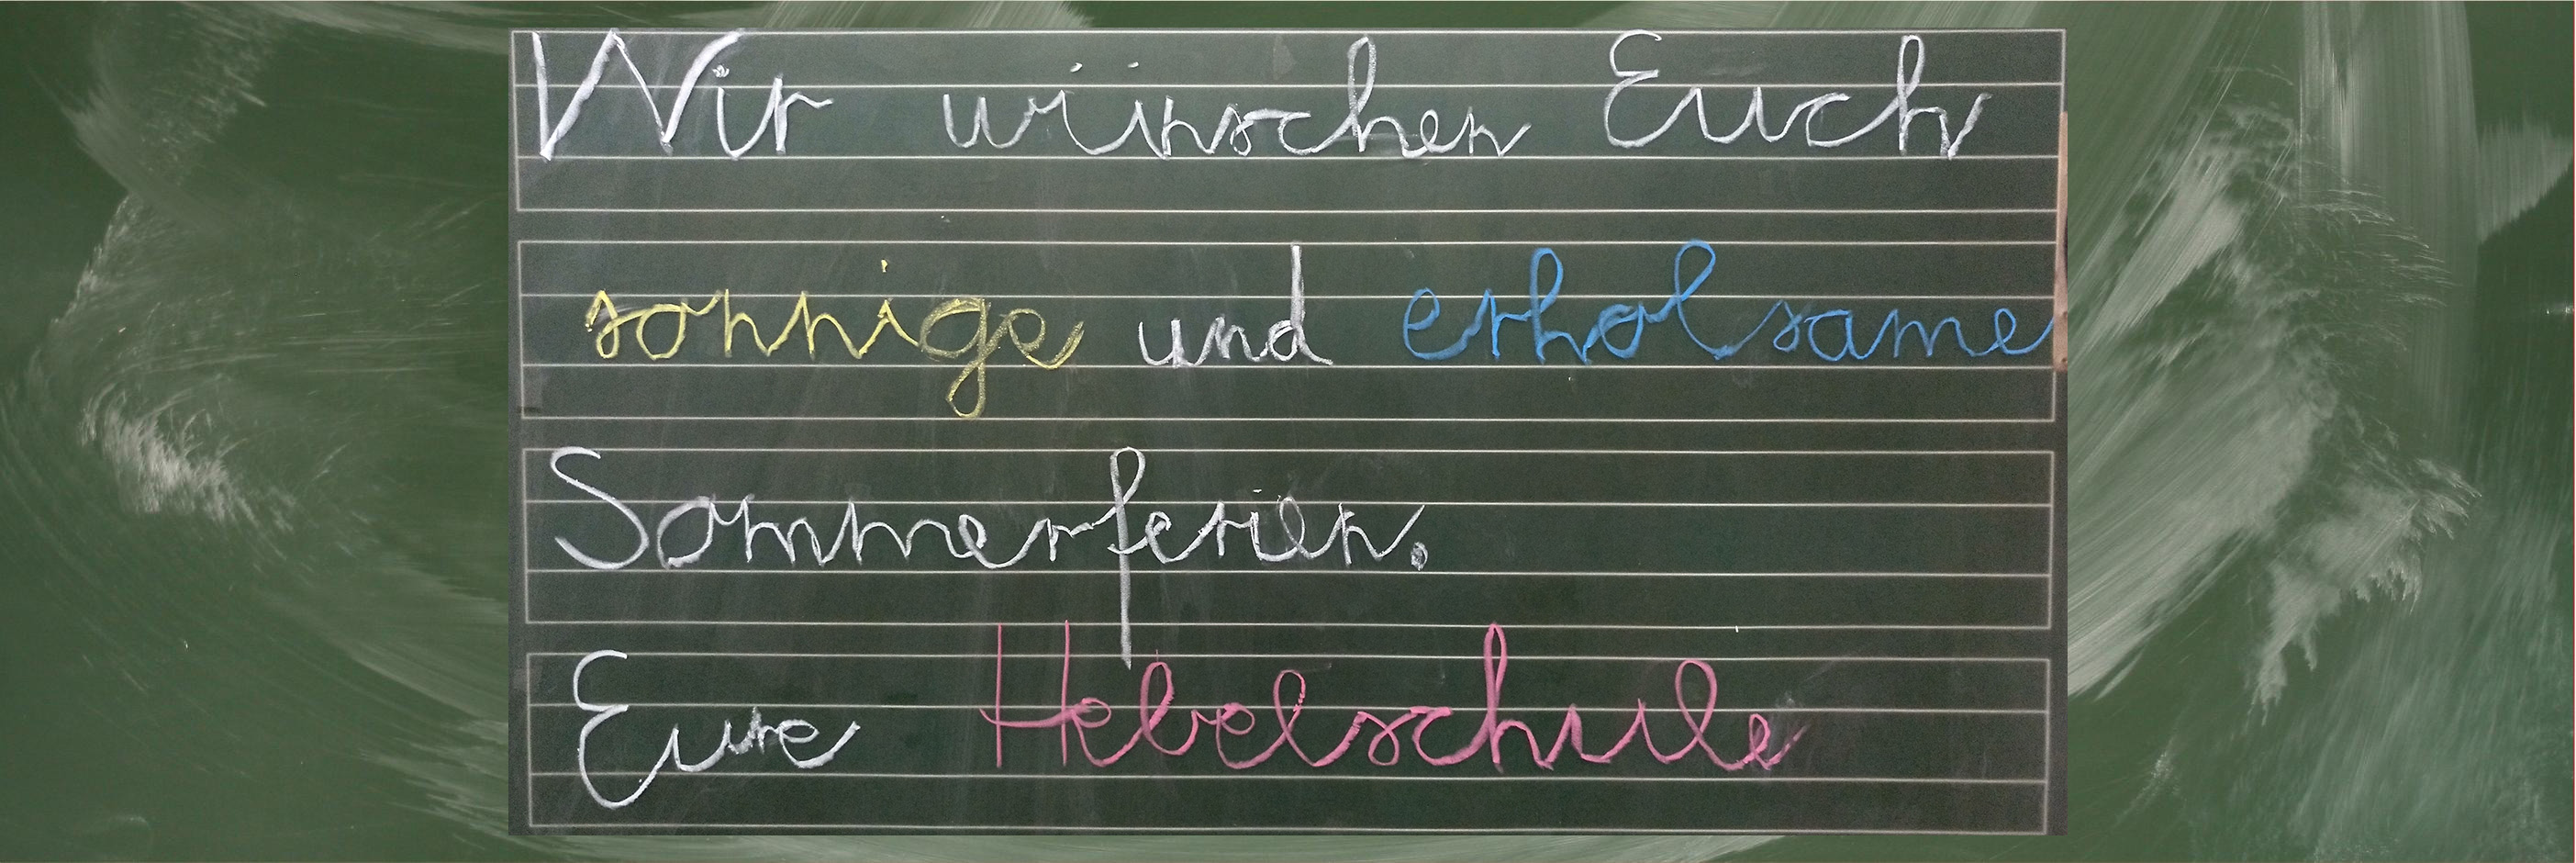 Wir wünschen Euch
sonnige und erholsame
Sommerferien.
Eure Hebelschule